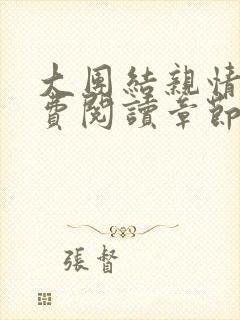 大團結親情
費閱讀章節
張督